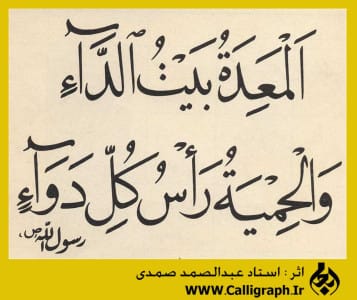 اَلْمَعِدَةُ بَيْتُ الدَّآءِ
وَالْحِمْيَةُ رَأْسُ كُلِّ دَوَآءٍ
رسول الله ص،
اثر : استاد عبدالصمد صمدی
www.Calligraph.Ir